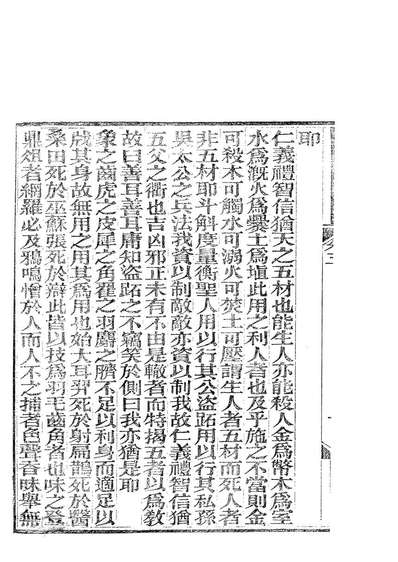 耶
仁義禮智信猶天之五材也能生人亦能殺人金為幣木為室
水為溉火為爨土為埴此用之利人者也及乎施之不當則金
可殺木可觸水可溺火可焚土可壓謂生人者五材而死人者
非五材耶斗斛度量衡聖人用以行其公盜跖用以行其私孫
吳太公之兵法我資以制敵敵亦資以制我故仁義禮智信猶
五父之衢也吉凶邪正未有不由是轍者而特揚五者以為教
故曰善耳善耳庸知盜跖之不竊笑於側曰我亦猶是耶
象之齒虎之皮犀之角翟之羽麝之臍不足以利身而適足以
戕其身故無用之用其為用也始大耳羿死於射扁鵲死於醫
桑田死於巫蘇張死於辯此皆以技為羽毛齒角者也味之登
鼎俎者網羅必及鴉鳴憎於人而人不之捕者色聲香味舉無